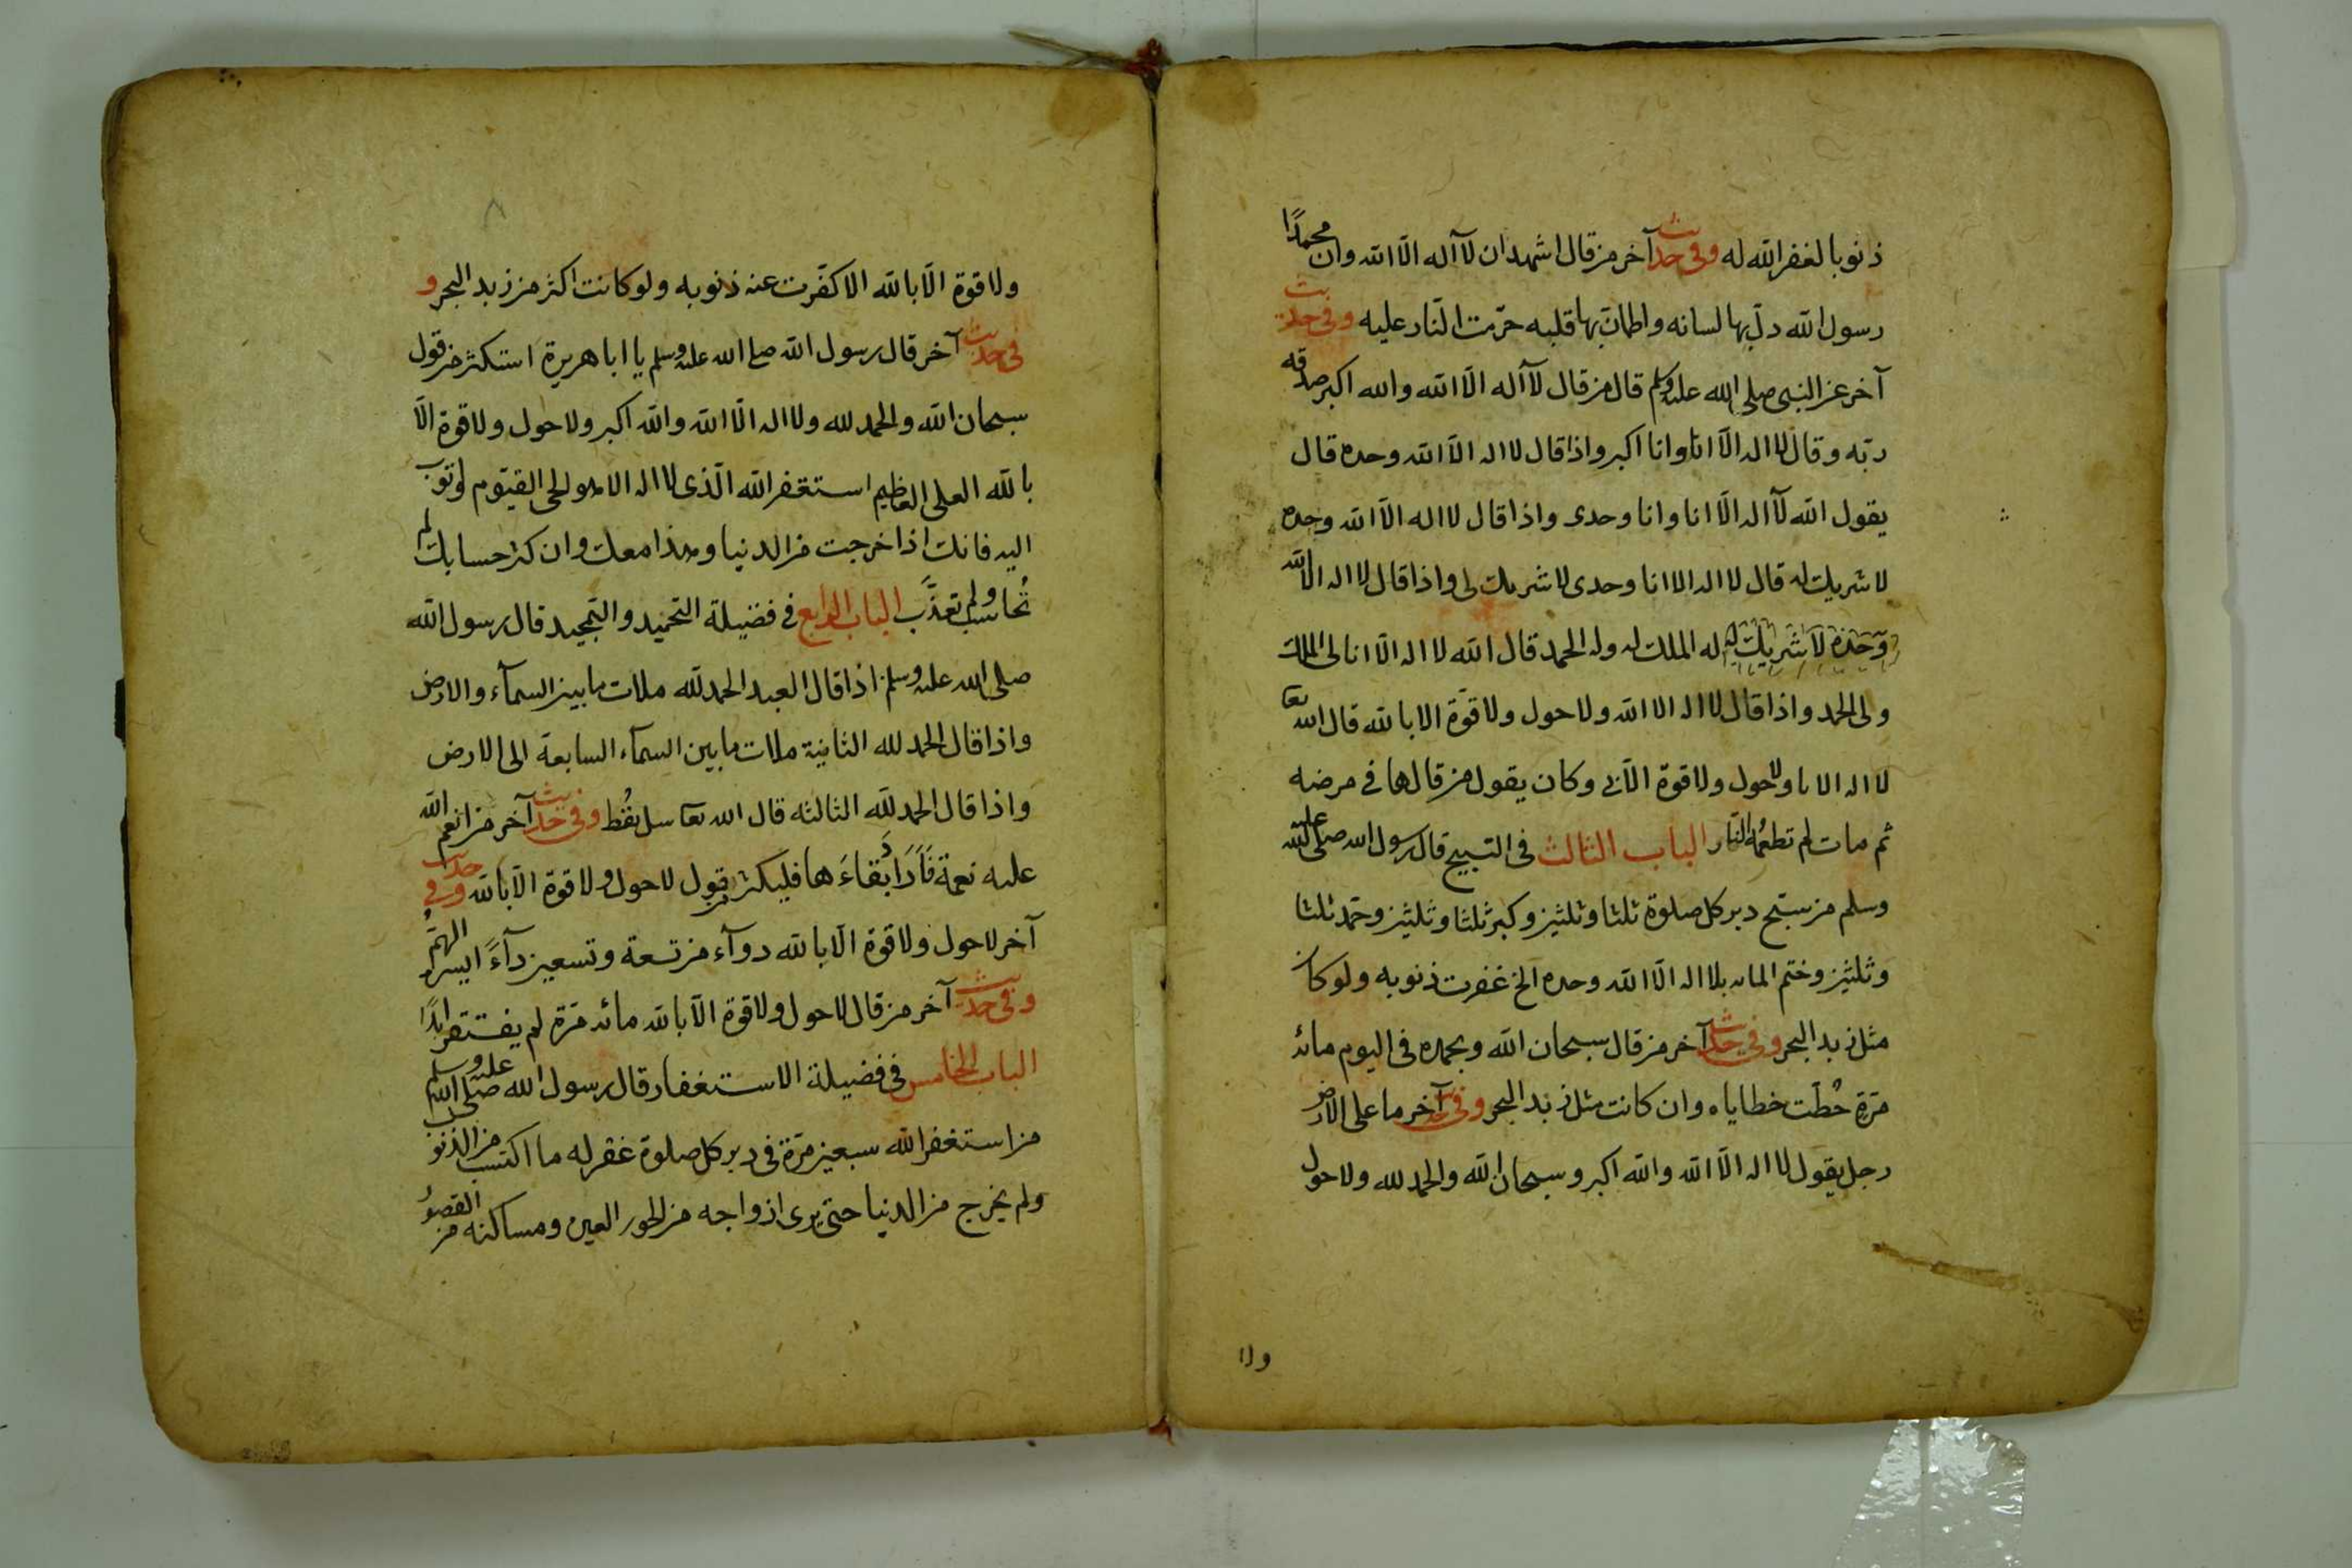 ذنوبا لغفر الله له وفى حديث آخر من قال اشهد ان لآ اله الّا الله وان محمدًا
رسول الله دلّ بها لسانه واطمانّ بها قلبه حرّمت النّار عليه وفى حديث
آخر عن النبى صلى الله عليه وسلم قال من قال لآ اله الّا الله والله اكبر صدقه
ربّه وقال لا اله الّا انا وانا اكبر واذا قال لا اله الّا الله وحده قال
يقول الله لآ اله الّا انا وانا وحدى واذا قال لا اله الّا الله وحده
لا شريك له قال لا اله الا انا وحدى لا شريك لى واذا قال لا اله الا الله
وحده لا شريك له له الملك وله الحمد قال الله لا اله الّا انا لى الملك
ولى الحمد واذا قال لا اله الا الله ولا حول ولا قوّة الا بالله قال الله تعا
لا اله الا انا ولا حول ولا قوة الّا بى وكان يقول من قالها فى مرضه
ثم مات لم تطعمه النّار الباب الثالث فى التسبيح قال رسول الله صلى الله عليه
وسلم من سبّح دبر كل صلوة ثلثا وثلثين وكبر ثلثا وثلثين وحمّد ثلثا
وثلثين وختم المائه بلا اله الّا الله وحده الخ غفرت ذنوبه ولو كان
مثل زبد البحر وفى حديث آخر من قال سبحان الله وبحمده فى اليوم مائه
مرّة حُطّت خطاياه وان كانت مثل زبد البحر وفى حديث آخر ما على الارض
رجل يقول لا اله الّا الله والله اكبر وسبحان الله والحمد لله ولا حول
ولا
ولا قوة الّا بالله الا كفّرت عنه ذنوبه ولو كانت اكثر من زبد البحر و
فى حديث آخر قال رسول الله صلى الله عليه وسلم يا ابا هريرة استكثر من قول
سبحان الله والحمد لله ولا اله الّا الله والله اكبر ولا حول ولا قوة الّا
بالله العلى العظيم استغفر الله الّذى لا اله الا هو الحى القيّوم واتوب
اليه فانك اذا خرجت من الدنيا وهذا معك وان كثر حسابك لم
تُحاسب ولم تعذّب الباب الرابع فى فضيلة التحميد والتمجيد قال رسول الله
صلى الله عليه وسلم اذا قال العبد الحمد لله ملات ما بين السمآء والارض
واذا قال الحمد لله الثانية ملات ما بين السمآء السابعة الى الارض
واذا قال الحمد لله الثالثه قال الله تعا سل تعُط وفى حديث آخر من انعم الله
عليه نعمة فَاَرَادَ بَقاءَها فليكثر من قول لا حول ولا قوة الّا بالله وفى حديث
آخر لا حول ولا قوة الّا بالله دوآء من تسعة وتسعين دآءً ايسرها الهمّ
وفى حديث آخر من قال لا حول ولا قوة الّا بالله مائه مرّة لم يفتقر ابدًا
الباب الخامس فى فضيلة الاستغفار قال رسول الله صلى الله عليه وسلم
من استغفر الله سبعين مرّة فى دبر كل صلوة غفر له ما اكتسب من الذنوب
ولم يخرج من الدنيا حتى يرى ازواجه من الحور العين ومساكنه من القصور